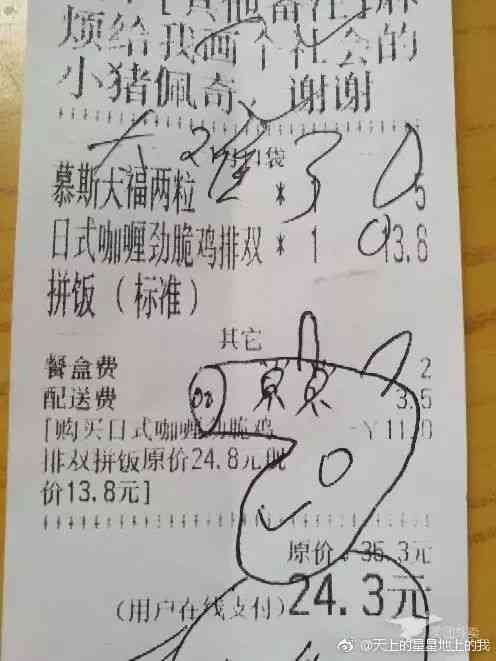 [其他备注]麻
烦给我画个社会的
小猪佩奇，谢谢
1号口袋
慕斯大福两粒 * 1 5
日式咖喱劲脆鸡排双 * 1 13.8
拼饭（标准）
其它
餐盒费 2
配送费 3.5
[购买日式咖喱劲脆鸡 -￥11.0
排双拼饭原价24.8元现
价13.8元]
原价：35.3元
(用户在线支付)24.3元
@天上的星星地上的我